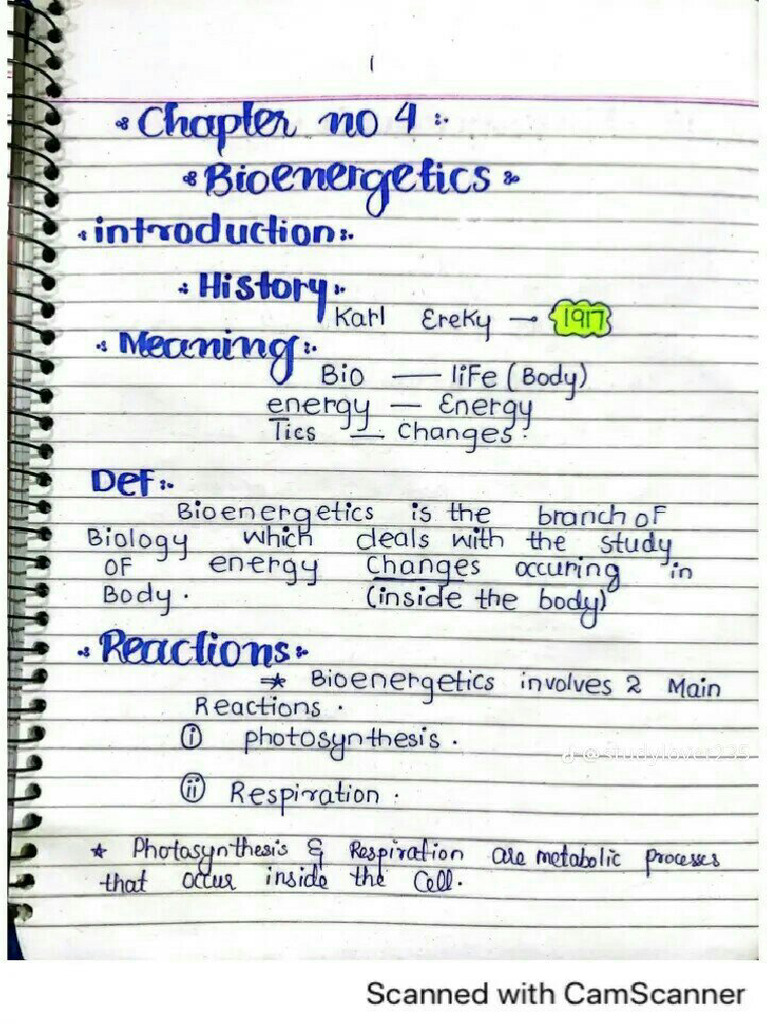 1
Chapter no 4 :-
Bioenergetics
introduction:-
History:-
Karl Ereky → 1917
Meaning:-
Bio — life (Body)
energy — Energy
Tics — Changes.
Def:-
Bioenergetics is the branch of
Biology which deals with the study
of energy Changes occuring in
Body. (inside the body)
Reactions:-
⇒ Bioenergetics involves 2 Main
Reactions.
(i) photosynthesis.
(ii) Respiration.
* Photosynthesis & Respiration are metabolic processes
that occur inside the Cell.
Scanned with CamScanner